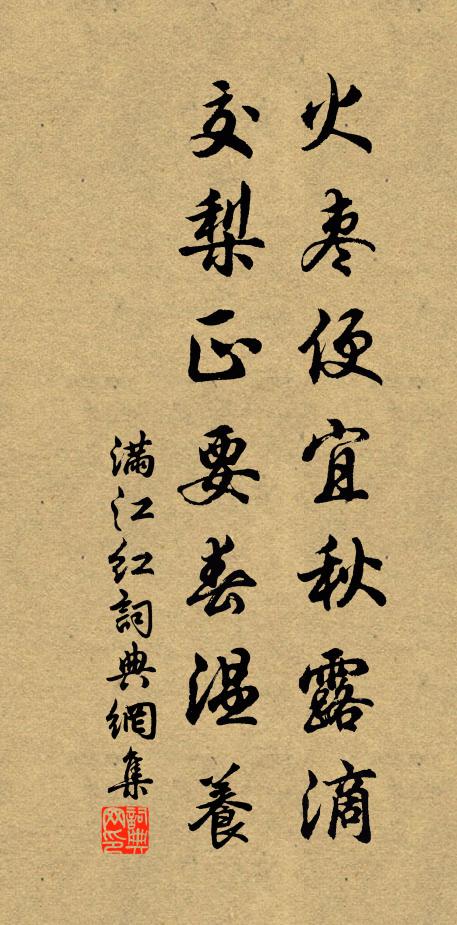 火枣便宜秋露滴
交梨正要春温養
满江红詞典網集
詞典
网印